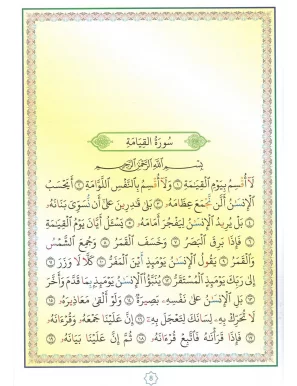 سُورَةُ القِيَامَةِ
بِسْمِ اللَّهِ الرَّحْمَٰنِ الرَّحِيمِ
لَا أُقْسِمُ بِيَوْمِ الْقِيَٰمَةِ ١ وَلَا أُقْسِمُ بِالنَّفْسِ اللَّوَّامَةِ ٢ أَيَحْسَبُ
الْإِنسَٰنُ أَلَّن نَّجْمَعَ عِظَامَهُۥ ٣ بَلَىٰ قَٰدِرِينَ عَلَىٰ أَن نُّسَوِّيَ بَنَانَهُۥ
٤ بَلْ يُرِيدُ الْإِنسَٰنُ لِيَفْجُرَ أَمَامَهُۥ ٥ يَسْـَٔلُ أَيَّانَ يَوْمُ الْقِيَٰمَةِ
٦ فَإِذَا بَرِقَ الْبَصَرُ ٧ وَخَسَفَ الْقَمَرُ ٨ وَجُمِعَ الشَّمْسُ
وَالْقَمَرُ ٩ يَقُولُ الْإِنسَٰنُ يَوْمَئِذٍ أَيْنَ الْمَفَرُّ ١٠ كَلَّا لَا وَزَرَ ١١
إِلَىٰ رَبِّكَ يَوْمَئِذٍ الْمُسْتَقَرُّ ١٢ يُنَبَّؤُا۟ الْإِنسَٰنُ يَوْمَئِذٍۭ بِمَا قَدَّمَ وَأَخَّرَ
١٣ بَلِ الْإِنسَٰنُ عَلَىٰ نَفْسِهِۦ بَصِيرَةٌ ١٤ وَلَوْ أَلْقَىٰ مَعَاذِيرَهُۥ ١٥
لَا تُحَرِّكْ بِهِۦ لِسَانَكَ لِتَعْجَلَ بِهِۦٓ ١٦ إِنَّ عَلَيْنَا جَمْعَهُۥ وَقُرْءَانَهُۥ
١٧ فَإِذَا قَرَأْنَٰهُ فَاتَّبِعْ قُرْءَانَهُۥ ١٨ ثُمَّ إِنَّ عَلَيْنَا بَيَانَهُۥ ١٩
8